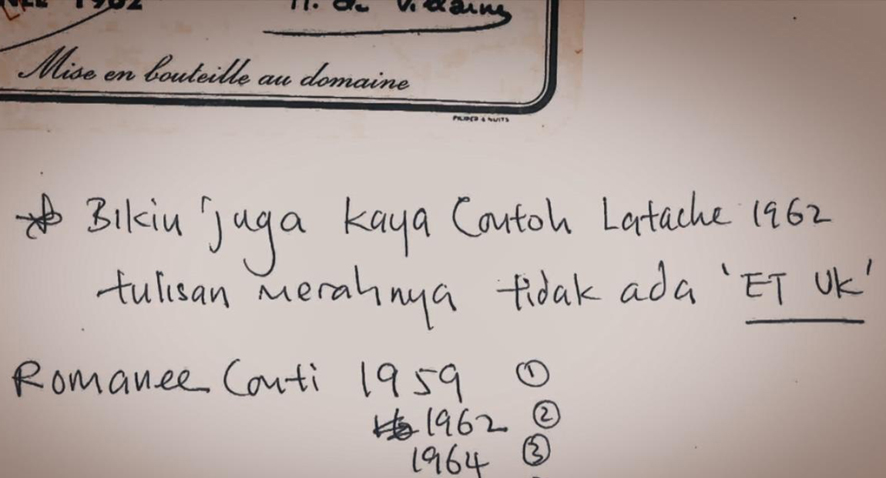 1962 H. de Villaine
Mise en bouteille au domaine
FILIBER & NUITS
Bikin juga kaya Contoh Latache 1962
tulisan merahnya tidak ada 'ET UK'
Romanee Conti 1959 ①
1962 ②
1964 ③